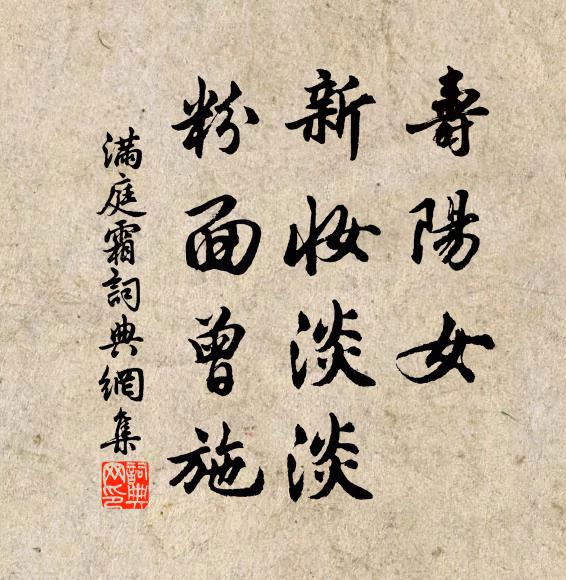 壽陽女
新妝淡淡
粉面曾施
滿庭霜詞典網集
詞典
网印